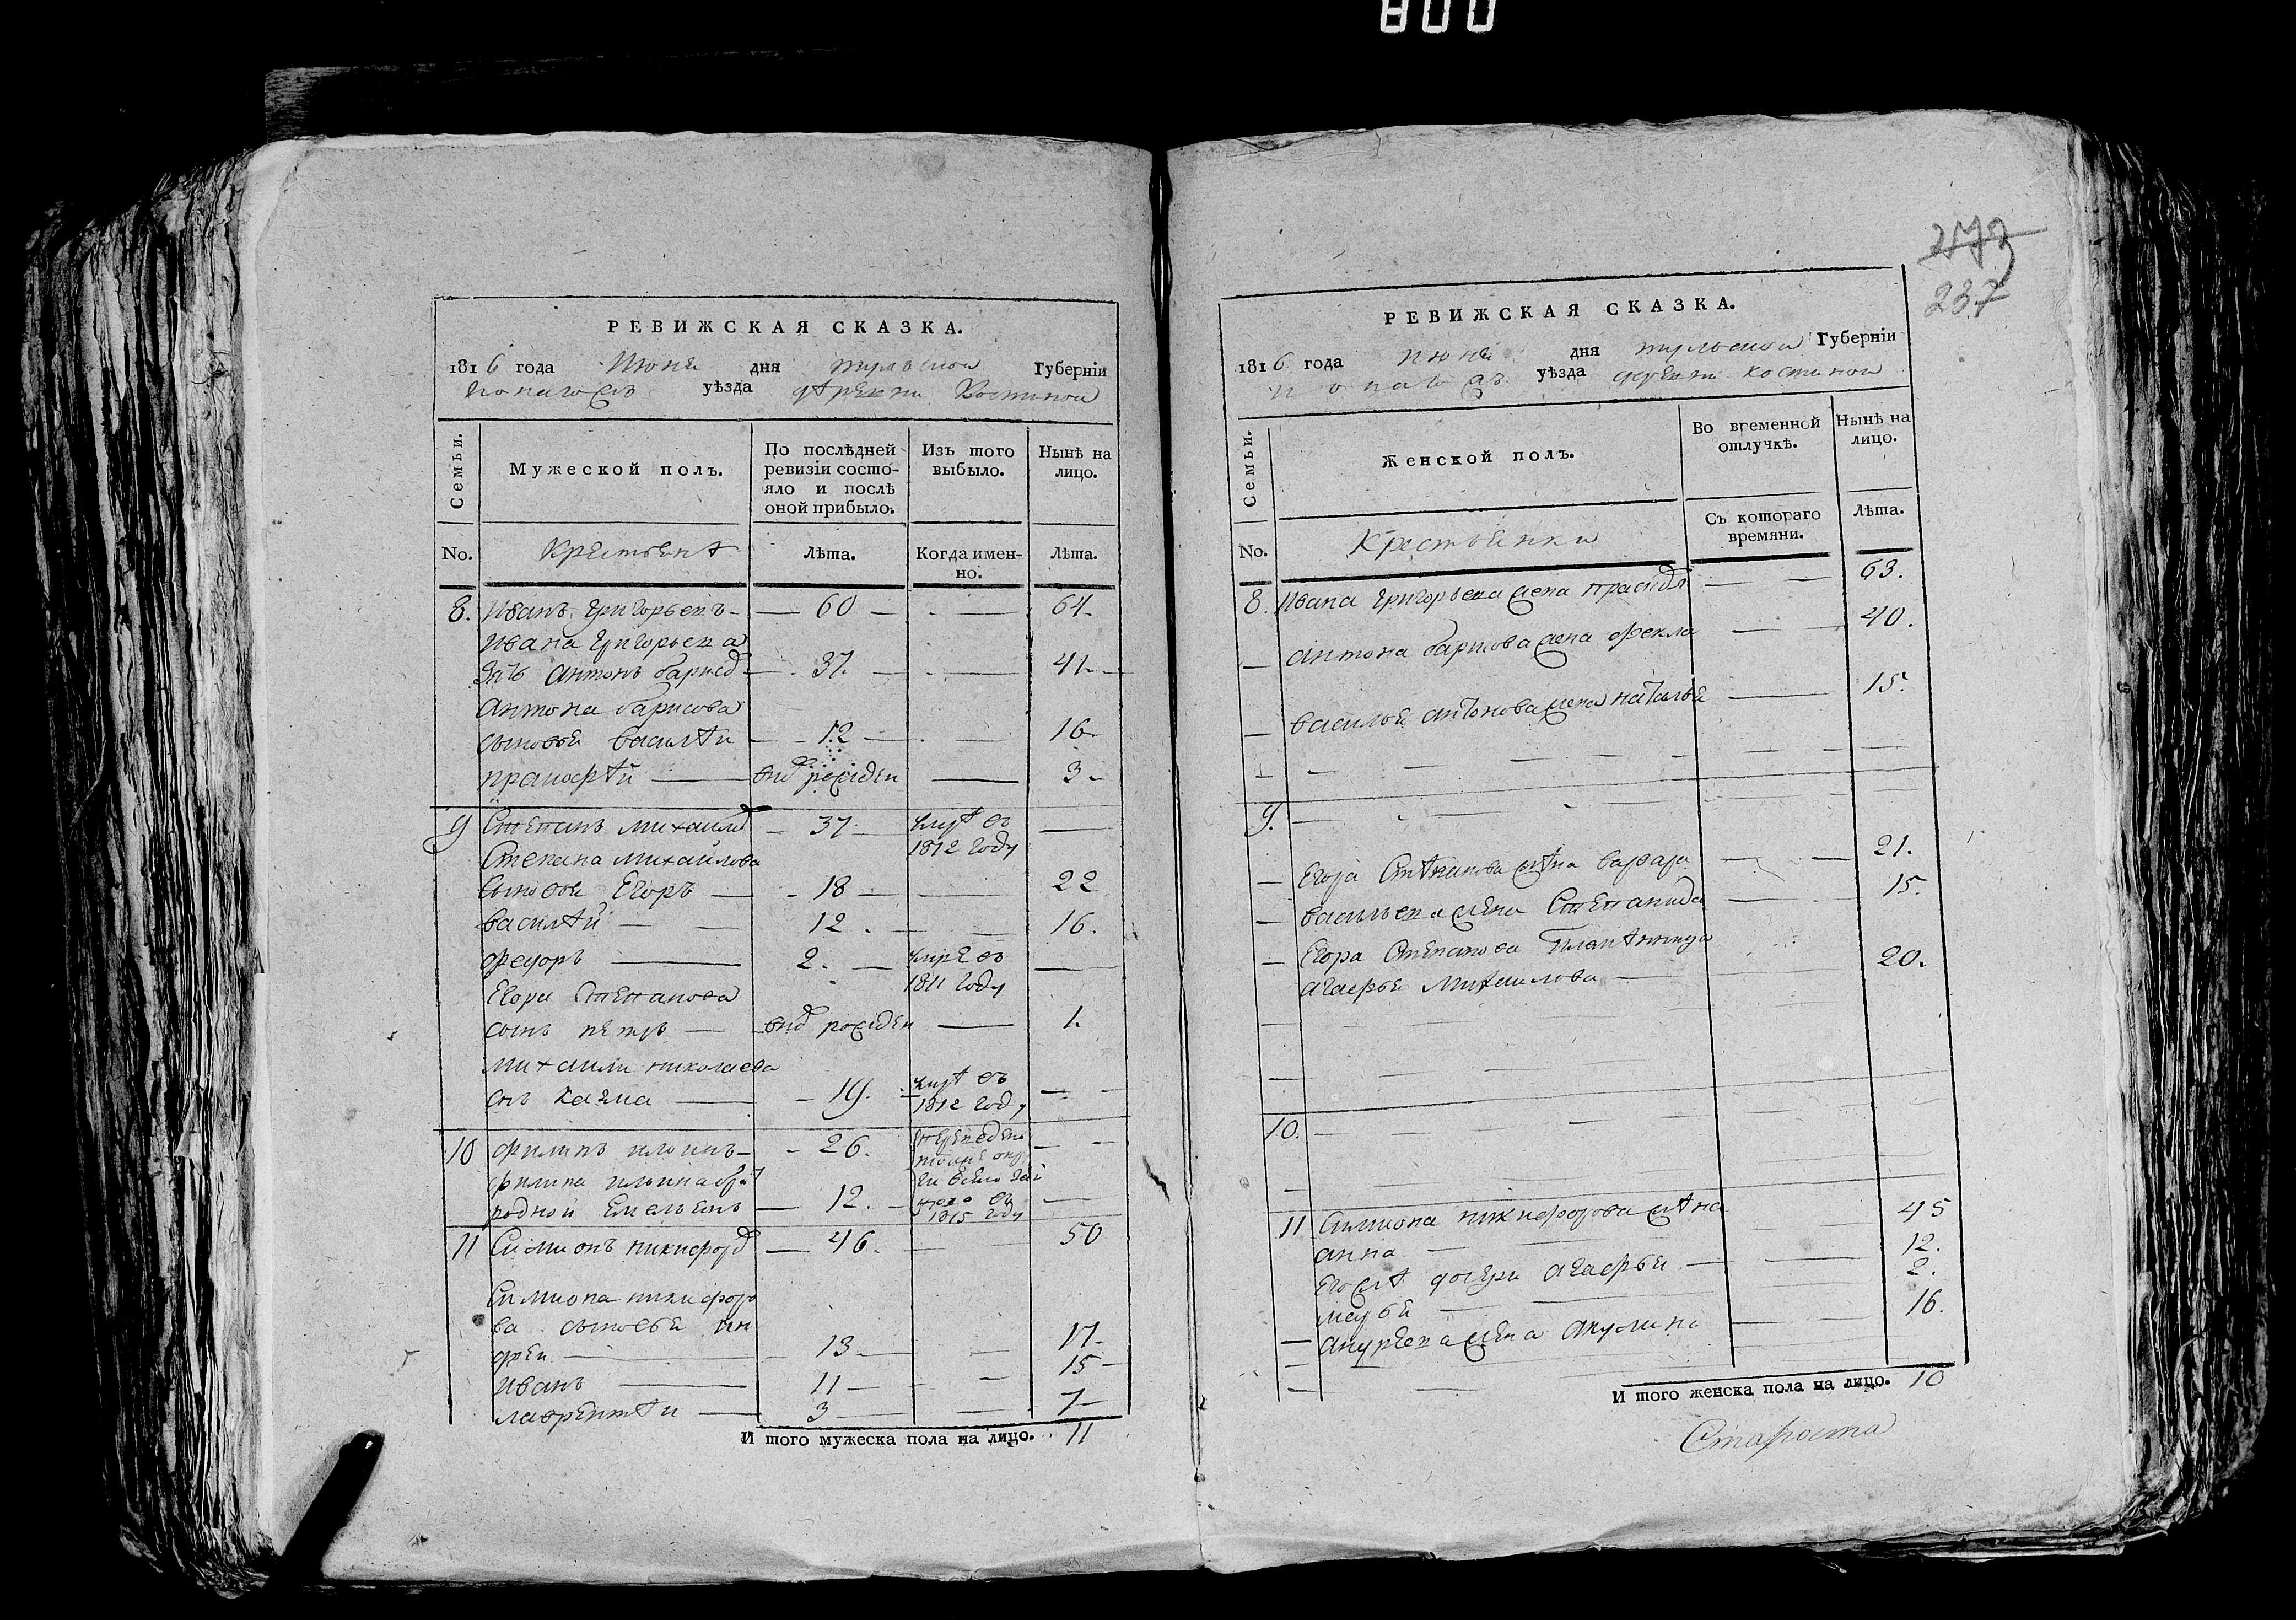 800
РЕВИЖСКАЯ СКАЗКА.
1816 года Июня дня тульской Губерніи
уѣзда Костиной
Семьи.
Мужеской полъ.
По послѣдней ревизіи состояло и послѣ оной прибыло.
Изъ того выбыло.
Нынѣ на лицо.
No.
Лѣта.
Когда именно.
Лѣта.
8. Иванъ Григорьевъ 60 64
Ивана Григорьева
зять антонъ барисов 37. 41
антона барисова
сыновья василѣи 12 16
пракофѣй внов рожден 3
9 Степанъ михаилов 37 умрѣ въ
1812 году
Степана михаилова
сыновья Егоръ 18 22
василѣй 12 16.
федоръ 2. умре въ
1811 году
Егора Степанова
сынъ петръ внов рожден 1.
михаилы николаева
снъ казма 19. умрѣ въ
1812 году
10 филипъ ильинъ 26.
филипа ильина брат
родной Емельянъ 12. въ
1815 году
11 Симионъ никифоров 46. 50
Симиона никифоро
ва сыновья ан
дреи 13 17
иванъ 11 15
лаврентѣи 3 7
И того мужеска пола на лицо. 11
273
237
РЕВИЖСКАЯ СКАЗКА.
1816 года июня дня тульской Губерніи
уѣзда деревни костиной
Семьи.
Женской полъ.
Во временной отлучкѣ.
Нынѣ на лицо.
No.
Крестьянки
Съ котораго времяни.
Лѣта.
8. Ивана Григорьева жена 63.
антона барисова жена фекла 40.
василья антонова жена наталья 15.
9.
Егора Стѣпанова жѣна варвара 21.
васильева жена Степанида 15.
Егора Степанова
агафья михаилова 20.
10.
11 Симиона никифорова жѣна
анна 45
дочери агафья 12.
2.
андреева жена акулина 16.
И того женска пола на лицо. 10
Староста